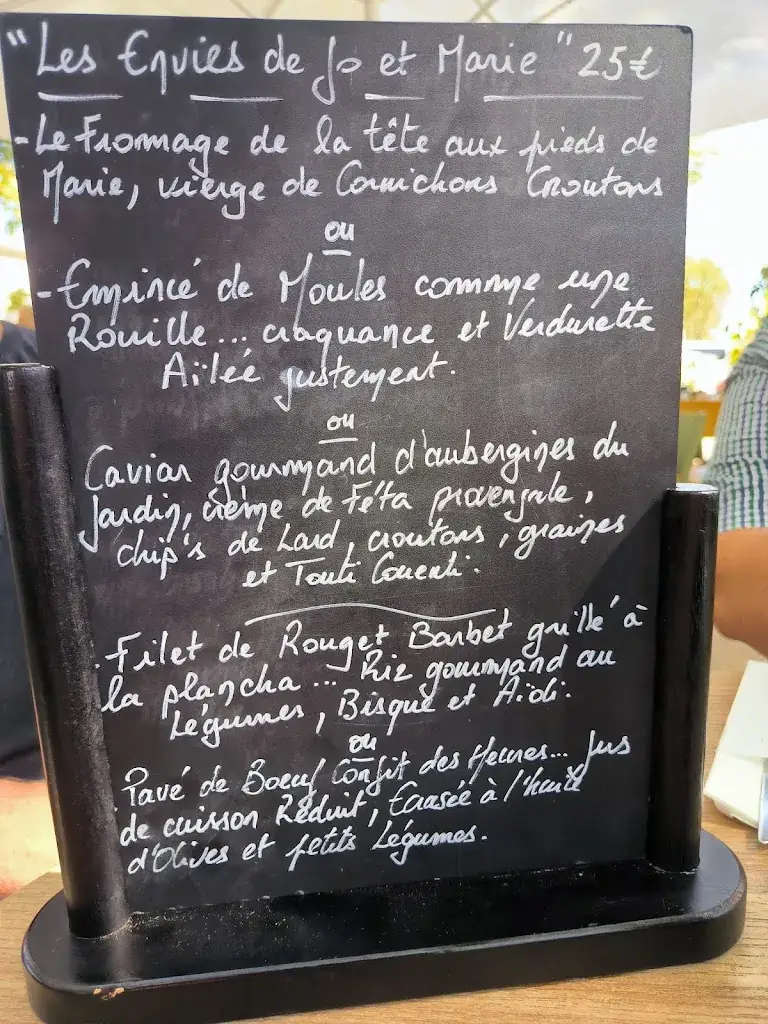 "Les Envies de Jo et Marie" 25€
- Le Fromage de la tête aux pieds de
Marie, vierge de Cornichons Croutons
ou
- Emincé de Moules comme une
Rouille... craquance et Verdurette
Aïlée justement.
ou
Caviar gourmand d'aubergines du
Jardin, crème de Féta provençale,
chip's de Lard, croutons, graines
et Toutti Couenti.
. Filet de Rouget Barbet grillé à
la plancha... Riz gourmand au
Légumes, Bisque et Aïoli.
ou
. Pavé de Boeuf Confit des Heures... Jus
de cuisson Réduit, Ecrasée à l'huile
d'Olives et petits Légumes.